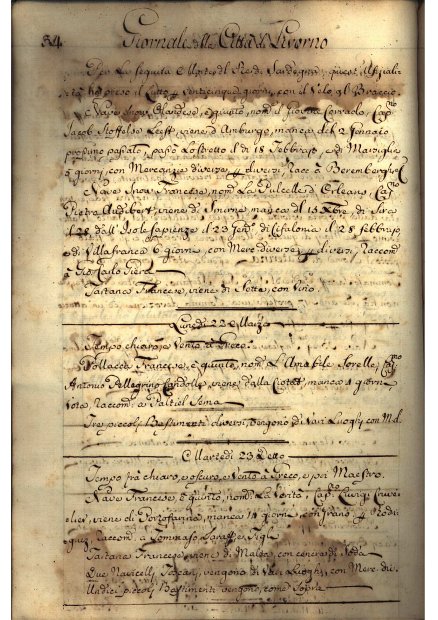 54 Giornale della Città di Livorno
Per la seguita Morte del Rè di Sardegna, questi Uffiziali
hà preso il Lutto venticinque giorni, con il Velo al Braccio
Nave Snow Olandese, è quinto, nom.
Jacob Stoffels viene d'Amburgo, manca del 2 Gennaio
prossimo passato, passò lo stretto il dì 18 Febbraio, e di Marsiglia
giorni, con Mercanzie diverse, e diversi Racc. à Berembergh
Nave Snow Francese, nom. La Pulcelle d'Orleans, Cap.no
Pietro Audibert, viene di Smirne manca del 15 Xbre, di Scio
il 28 dall'Isola Sapienze il 23 Genn. di Cifalonia il 28 Febbraio
e di Villafranca 6 giorni, con Merc. diverse, e diversi Raccom.
à Gio: Carlo
Tartana Francese, viene di Sette, con Vino.
Lunedì 22 Marzo
Tempo chiaro, e Vento à Greco.
Pollacca Francese, è quinto, nom. L'Amabile Sorelle, Cap.no
Antonio Pellegrino viene dalla Ciotat, manca giorni
Vota, Raccom. a Paltiel Sema
Tre piccoli Bastimenti diversi, vengono di Vari Luoghi, con M.d.
Martedì 23 Detto
Tempo frà chiaro, e oscuro, e Vento à Greco, e poi Maestro.
Nave Francese, è quinto, nom. La Verità, Cap. Luigi
viene di Portofarino, manca 14 giorni, con Grano,
Raccom. à Tommaso
Tartana Francese, viene di Malta, con cenere di Soda
Due Navicelli Toscani, vengono di Vari Luoghi, con Merc. di.
Undici piccoli Bastimenti vengono, come Sopra